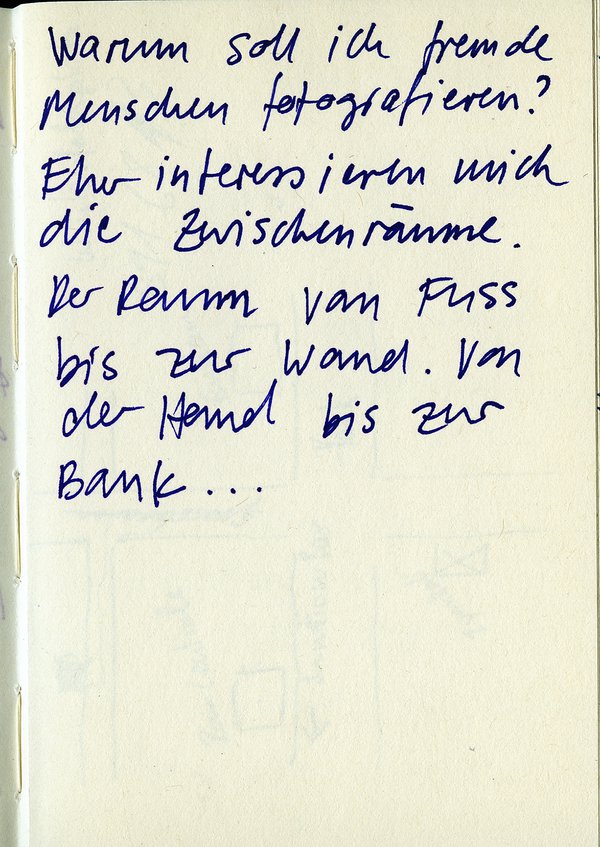 Warum soll ich fremde
Menschen fotografieren?
Eher interessieren mich
die Zwischenräume.
Der Raum von Fuss
bis zur Wand. Von
der Hand bis zur
Bank...